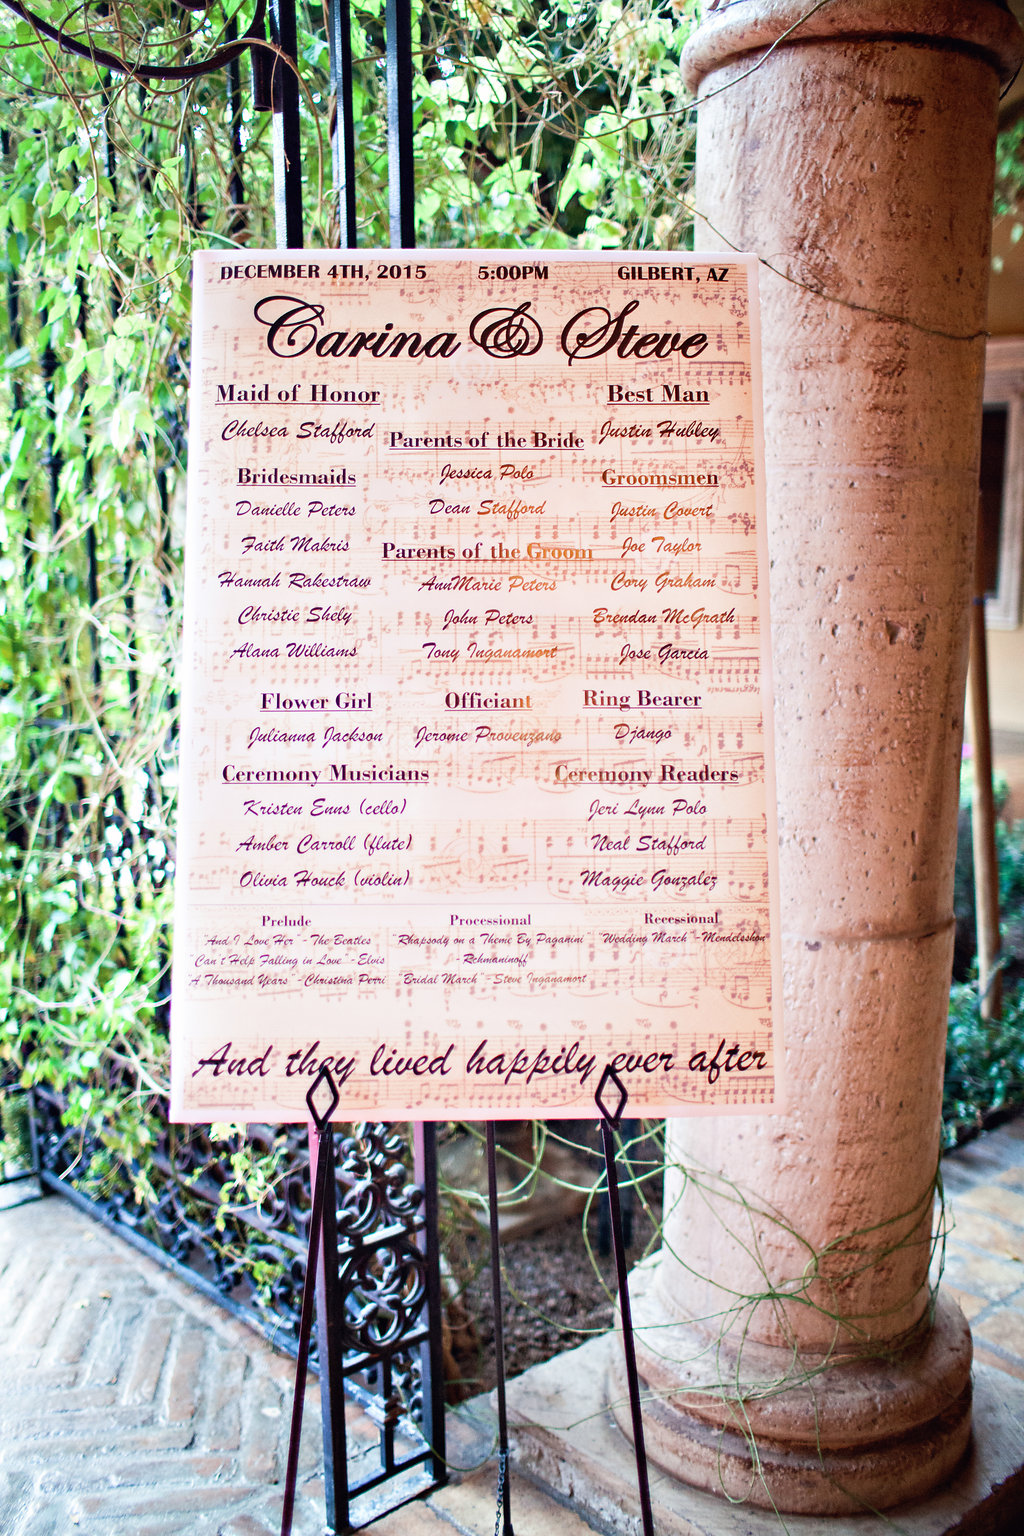 DECEMBER 4TH, 2015 5:00PM GILBERT, AZ
Carina & Steve
Maid of Honor
Chelsea Stafford
Bridesmaids
Danielle Peters
Faith Makris
Hannah Rakestraw
Christie Shely
Alana Williams
Parents of the Bride
Jessica Polo
Dean Stafford
Parents of the Groom
AnnMarie Peters
John Peters
Tony Inganamort
Best Man
Justin Hubley
Groomsmen
Justin Covert
Joe Taylor
Cory Graham
Brendan McGrath
Jose Garcia
Flower Girl
Julianna Jackson
Officiant
Jerome Provenzano
Ring Bearer
Django
Ceremony Musicians
Kristen Enns (cello)
Amber Carroll (flute)
Olivia Houck (violin)
Ceremony Readers
Jeri Lynn Polo
Neal Stafford
Maggie Gonzalez
Prelude
"And I Love Her" - The Beatles
"Can't Help Falling in Love" - Elvis
"A Thousand Years" - Christina Perri
Processional
"Rhapsody on a Theme By Paganini"
- Rchmaninoff
"Bridal March" - Steve Inganamort
Recessional
"Wedding March" - Mendelsshon
And they lived happily ever after